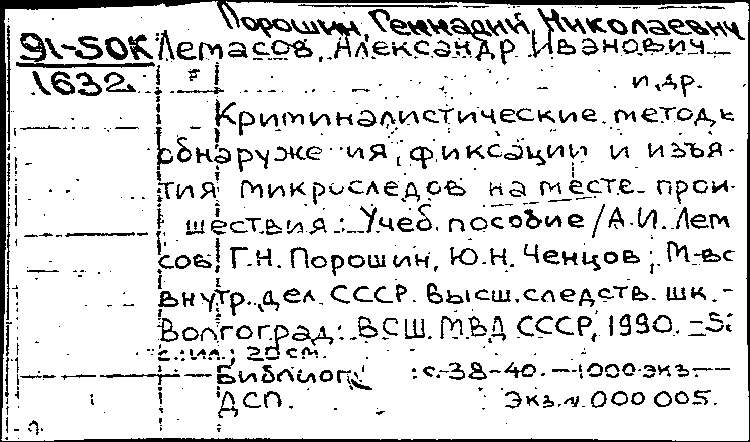 Порошин, Геннадий Николаевич
91-50К Лемасов, Александр Иванович
1632 и др.
Криминалистические метод
обнаруже ия, фиксации и изъя-
тия микроследов на месте прои-
шествия: Учеб. пособие / А.И. Лем
сов, Г.Н. Порошин, Ю.Н. Ченцов; М-вс
внутр. дел СССР. Высш. следств. шк. -
Волгоград: ВСШ МВД СССР, 1990. - 5
с.: ил.; 20 см.
Библиог : с. 38-40. — 1000 экз. —
ДСП. Экз. N 000 005.